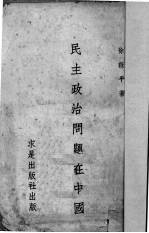 民主政治問題在中國
求是出版社出版